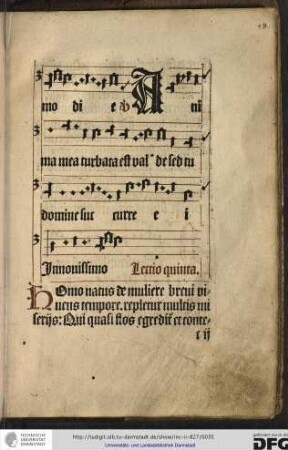 mo di e ℣ A ni
ma mea turbata est val de sed tu
domine suc curre e i
Innouissimo Lectio quinta.
Homo natus de muliere breui vi
uens tempore. repletur multis mi
serijs: Qui quasi flos egredit et conte
l ij
TECHNISCHE UNIVERSITÄT DARMSTADT
http://tudigit.ulb.tu-darmstadt.de/show/inc-ii-827/0035
Universitäts- und Landesbibliothek Darmstadt
DFG